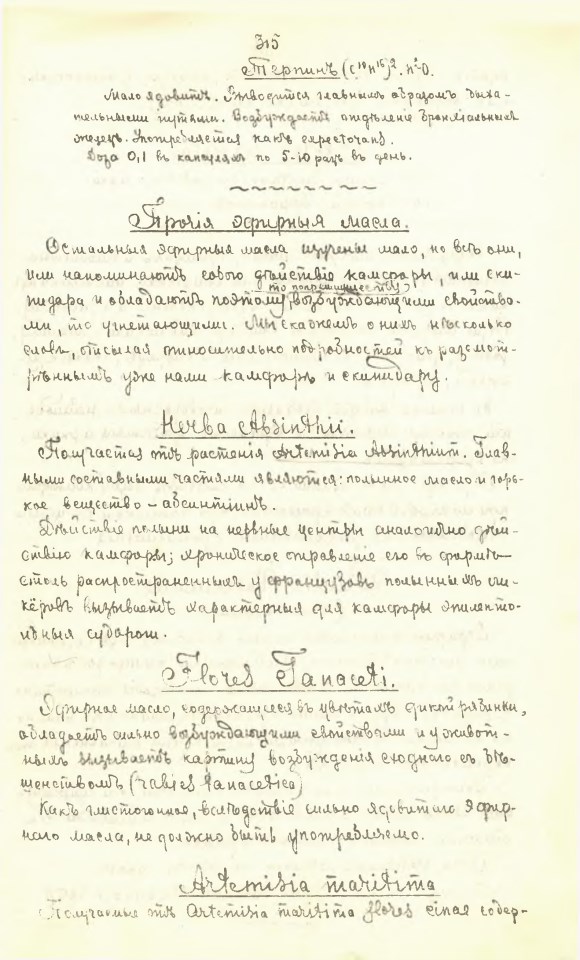 315
Терпинъ (С¹⁰Н¹⁶)². Н²О.
Мало ядовитъ. Выводится главнымъ образомъ дыха-
тельными путями. Возбуждаетъ отдѣленіе бронхіальныхъ
железъ. Употребляется какъ expectorans.
Доза 0,1 въ капсуляхъ по 5-10 разъ въ день.
Прочія эфирныя масла.
Остальныя эфирныя масла изучены мало, но всѣ они,
или напоминаютъ собою дѣйствіе камфоры, или ски-
то по преимуществу
пидара и обладаютъ поэтому возбуждающими свойства-
ми, то угнетающими. Мы скажемъ о нихъ нѣсколько
словъ, отсылая относительно подробностей къ разсмот-
рѣннымъ уже нами камфорѣ и скипидару.
Herba Absinthii.
Получается отъ растенія Artemisia Absinthium. Глав-
ными составными частями являются: полынное масло и горь-
кое вещество – абсинтіинъ.
Дѣйствіе полыни на нервные центры аналогично дѣй-
ствію камфоры; хроническое отравленіе ею въ формѣ
столь распространенныхъ у французовъ полынныхъ ли-
кёровъ вызываетъ характерныя для камфоры эпилепто-
идныя судороги.
Flores Tanaceti.
Эфирное масло, содержащееся въ цвѣтахъ дикой рябинки,
обладаетъ сильно возбуждающими свойствами и у живот-
ныхъ вызываетъ картину возбужденія сходнаго съ бѣ-
шенствомъ (rabies tanacetica)
Какъ глистогонное, вслѣдствіе сильно ядовитаго эфир-
наго масла, не должно быть употребляемо.
Artemisia maritima
Получаемые отъ Artemisia maritima flores cinae содер-